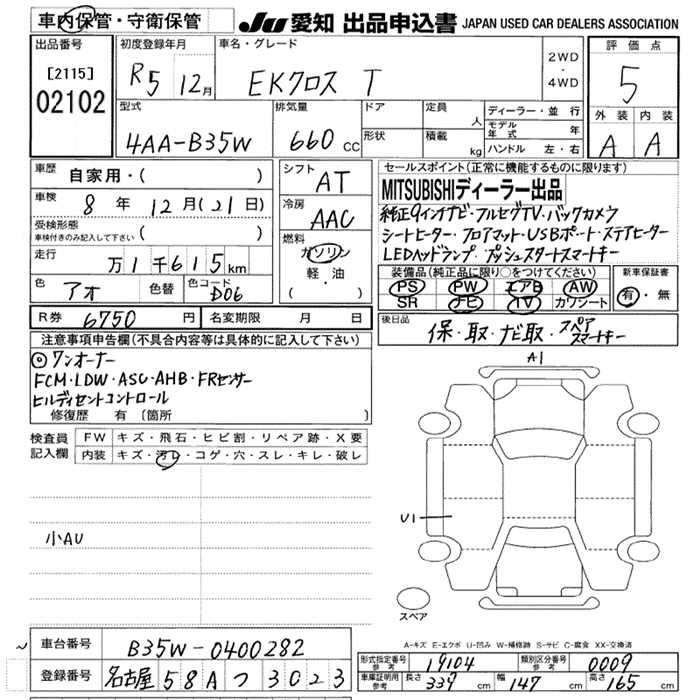 車内保管・守衛保管
JU 愛知 出品申込書 JAPAN USED CAR DEALERS ASSOCIATION
出品番号
[2115]
02102
初度登録年月
R5 12月
車名・グレード
EKクロス T
2WD
・
4WD
評価点
5
外装 内装
A A
型式
4AA-B35W
排気量
660 CC
ドア
形状
定員 人
積載 kg
ディーラー・並行
モデル年式 年
ハンドル 左・右
車歴
自家用・( )
車検 8年 12月(21日)
受検形態
車検付きのみ記入して下さい ( )
走行 万1千615km
色 アオ 色替 色コード D06
シフト
AT
冷房
AAC
燃料
ガソリン
軽・油
( )
セールスポイント(正常に機能するものに限ります)
MITSUBISHIディーラー出品
純正9インチナビ・フルセグTV・バックカメラ
シートヒーター・フロアマット・USBポート・ステアヒーター
LEDヘッドランプ・プッシュスタートスマートキー
装備品(純正品に限り○をつけてください)
PS PW エアB AW
SR ナビ TV カワシート
新車保証書
有・無
R券 6750 円 名変期限 月 日
後日品
保・取・ナビ取・スペアスマートキー
注意事項申告欄(不具合内容等は具体的に記入して下さい)
◎ワンオーナー
FCM・LDW・ASC・AHB・FRセンサー
ヒルディセントコントロール
修復歴 有 [箇所 ]
検査員記入欄
FW キズ・飛石・ヒビ割・リペア跡・X要
内装 キズ・汚レ・コゲ・穴・スレ・キレ・破レ
小AU
A1
U1
スペア
A-キズ E-エクボ U-凹み W-補修跡 S-サビ C-腐食 XX-交換済
車台番号 B35W-0400282
登録番号 名古屋 58A つ 3023
形式指定番号 参考 19104 類別区分番号 参考 0009
車庫証明用 参考 長さ 339 cm 幅 147 cm 高さ 165 cm